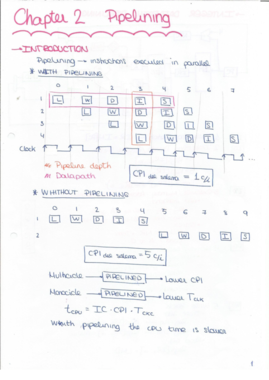 Chapter 2 Pipelining
→INTRODUCTION
Pipelining → instructions executed in parallel
* WITH PIPELINING
0 1 2 3 4 5 6 7
1 L W D I S
2 L W D I S
3 L W D I S
4 L W D I S
Clock ...
Pipeline depth
Datapath
CPI = 1 c/i
* WHITHOUT PIPELINING
0 1 2 3 4 5 6 7 8 9
1 L W D I S
2 L W D I S
CPI = 5 c/i
Multicicle → PIPELINED → Lower CPI
Monocicle → PIPELINED → Lower
= IC · CPI ·
pipelining the cpu time is
1